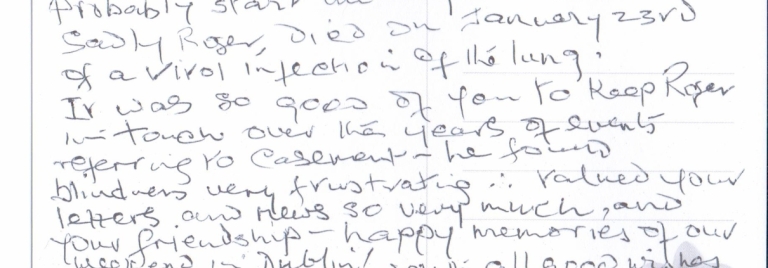 Probably start
Sadly Roger, died on January 23rd
of a viral infection of the lung.
It was so good of you to keep Roger
in touch over the years of events
referring to Casement – he found
blindness very frustrating ∴ valued your
letters and news so very much, and
your friendship – happy memories of our
weekend in Dublin! all good wishes